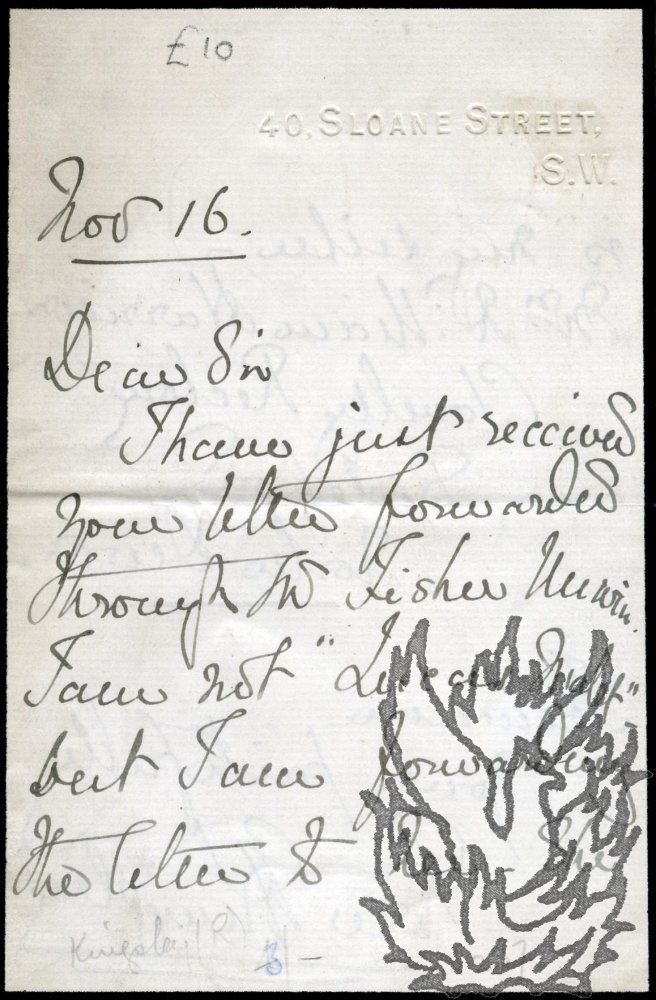 £10
40, SLOANE STREET,
S.W.
Nov 16.
Dear Sir
I have just received
your letter forwarded
through Mr Fisher Unwin.
I am not "Lucas Malet"
but I am forwarding
the letter to her. She
Kingsley (R) 3/-